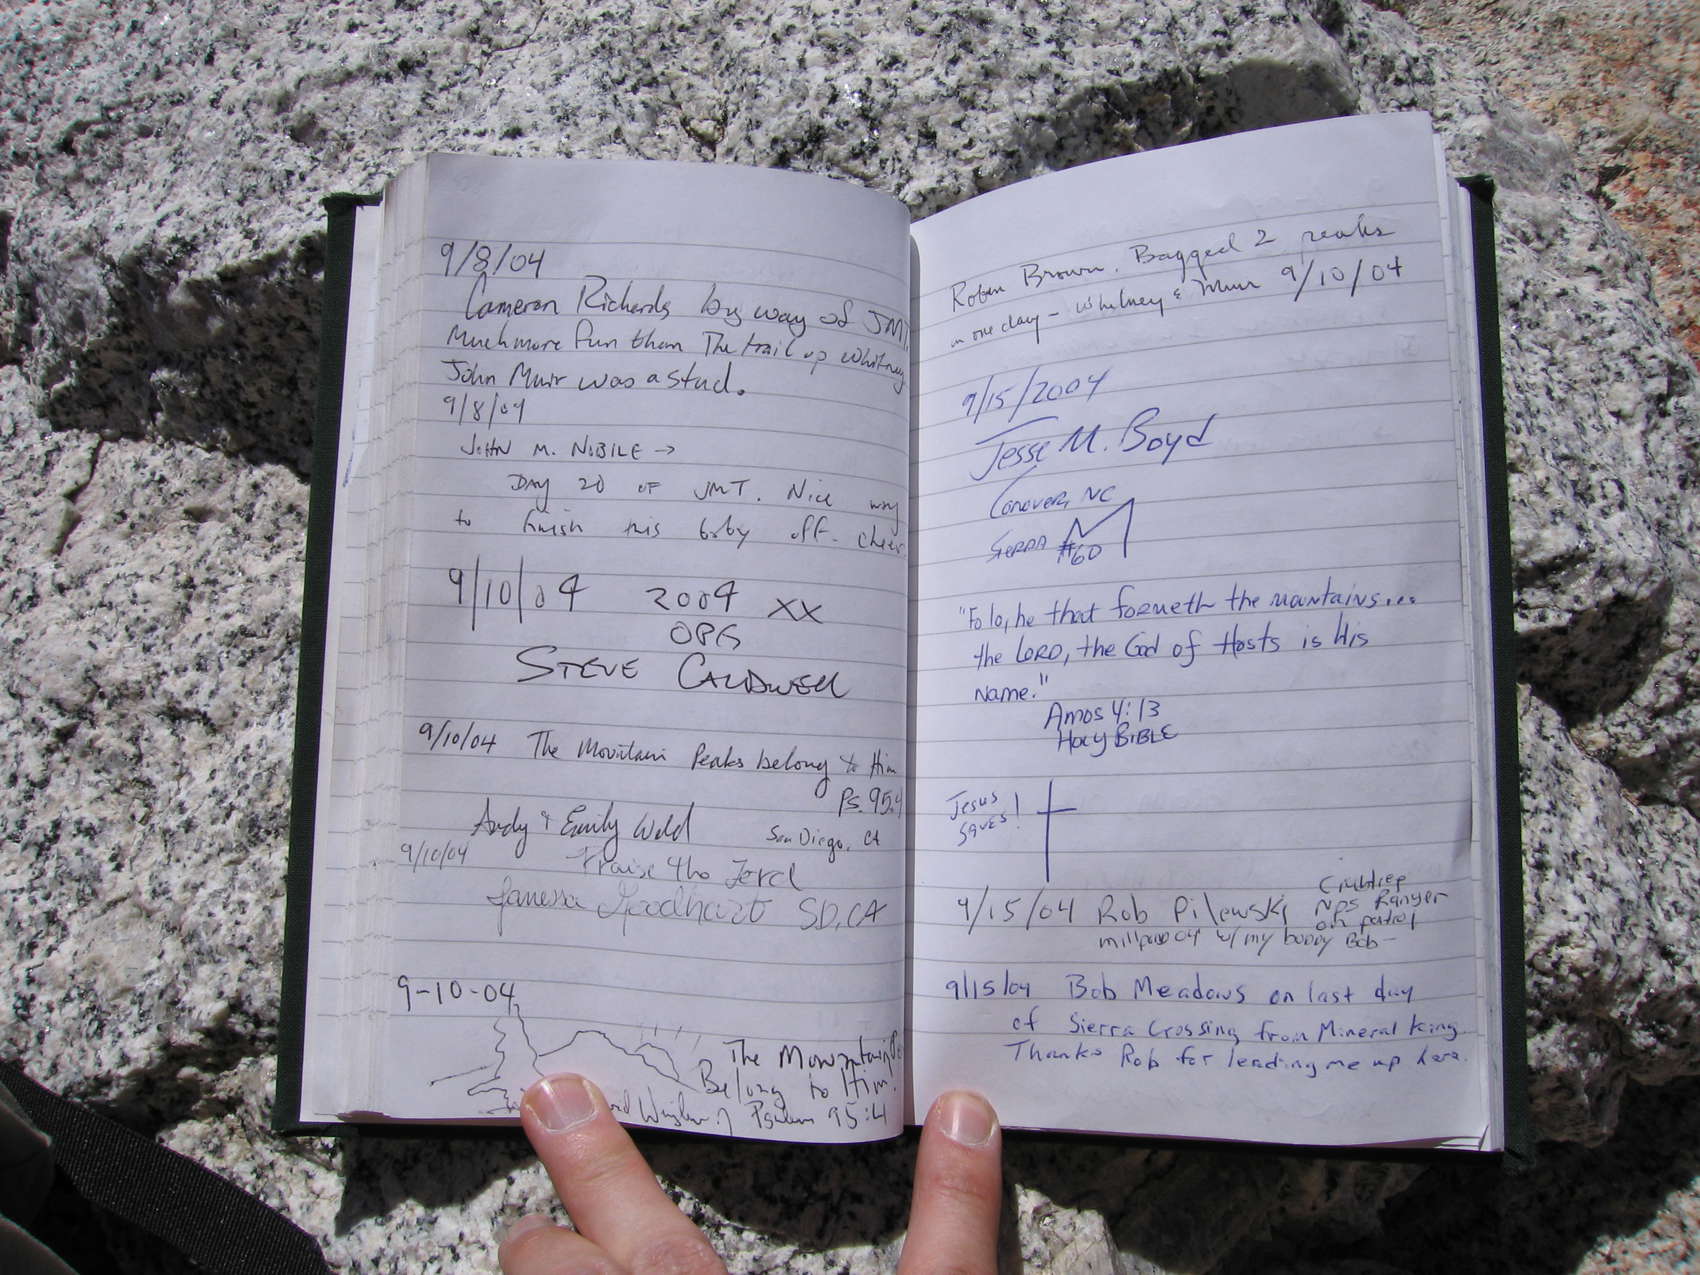 9/8/04
Cameron Richards by way of JMT.
Much more fun than The trail up Whitney
John Muir was a stud.
9/8/04
JOHN M. NOBILE →
DAY 20 OF JMT. Nice way
to finish this baby off. cheers
9/10/04 2004 XX
OPG
STEVE CALDWELL
9/10/04 The Mountain Peaks belong to Him
Ps. 95:4
Andy & Emily Weld San Diego, CA
9/10/04 Praise the Lord
Goodhart SD, CA
9-10-04
The Mountain
Belong to Him.
Psalm 95:4
Robin Brown. Bagged 2 peaks
in one day - Whitney & Muir 9/10/04
9/15/2004
Jesse M. Boyd
Conover, NC
SIERRA #60
"Fo lo, he that formeth the mountains...
the LORD, the God of Hosts is His
Name."
Amos 4:13
HOLY BIBLE
Jesus
saves!
9/15/04 Rob Pilewski
NPS Ranger
on patrol
w/ my buddy Bob-
9/15/04 Bob Meadows on last day
of Sierra Crossing from Mineral King.
Thanks Rob for leading me up here.